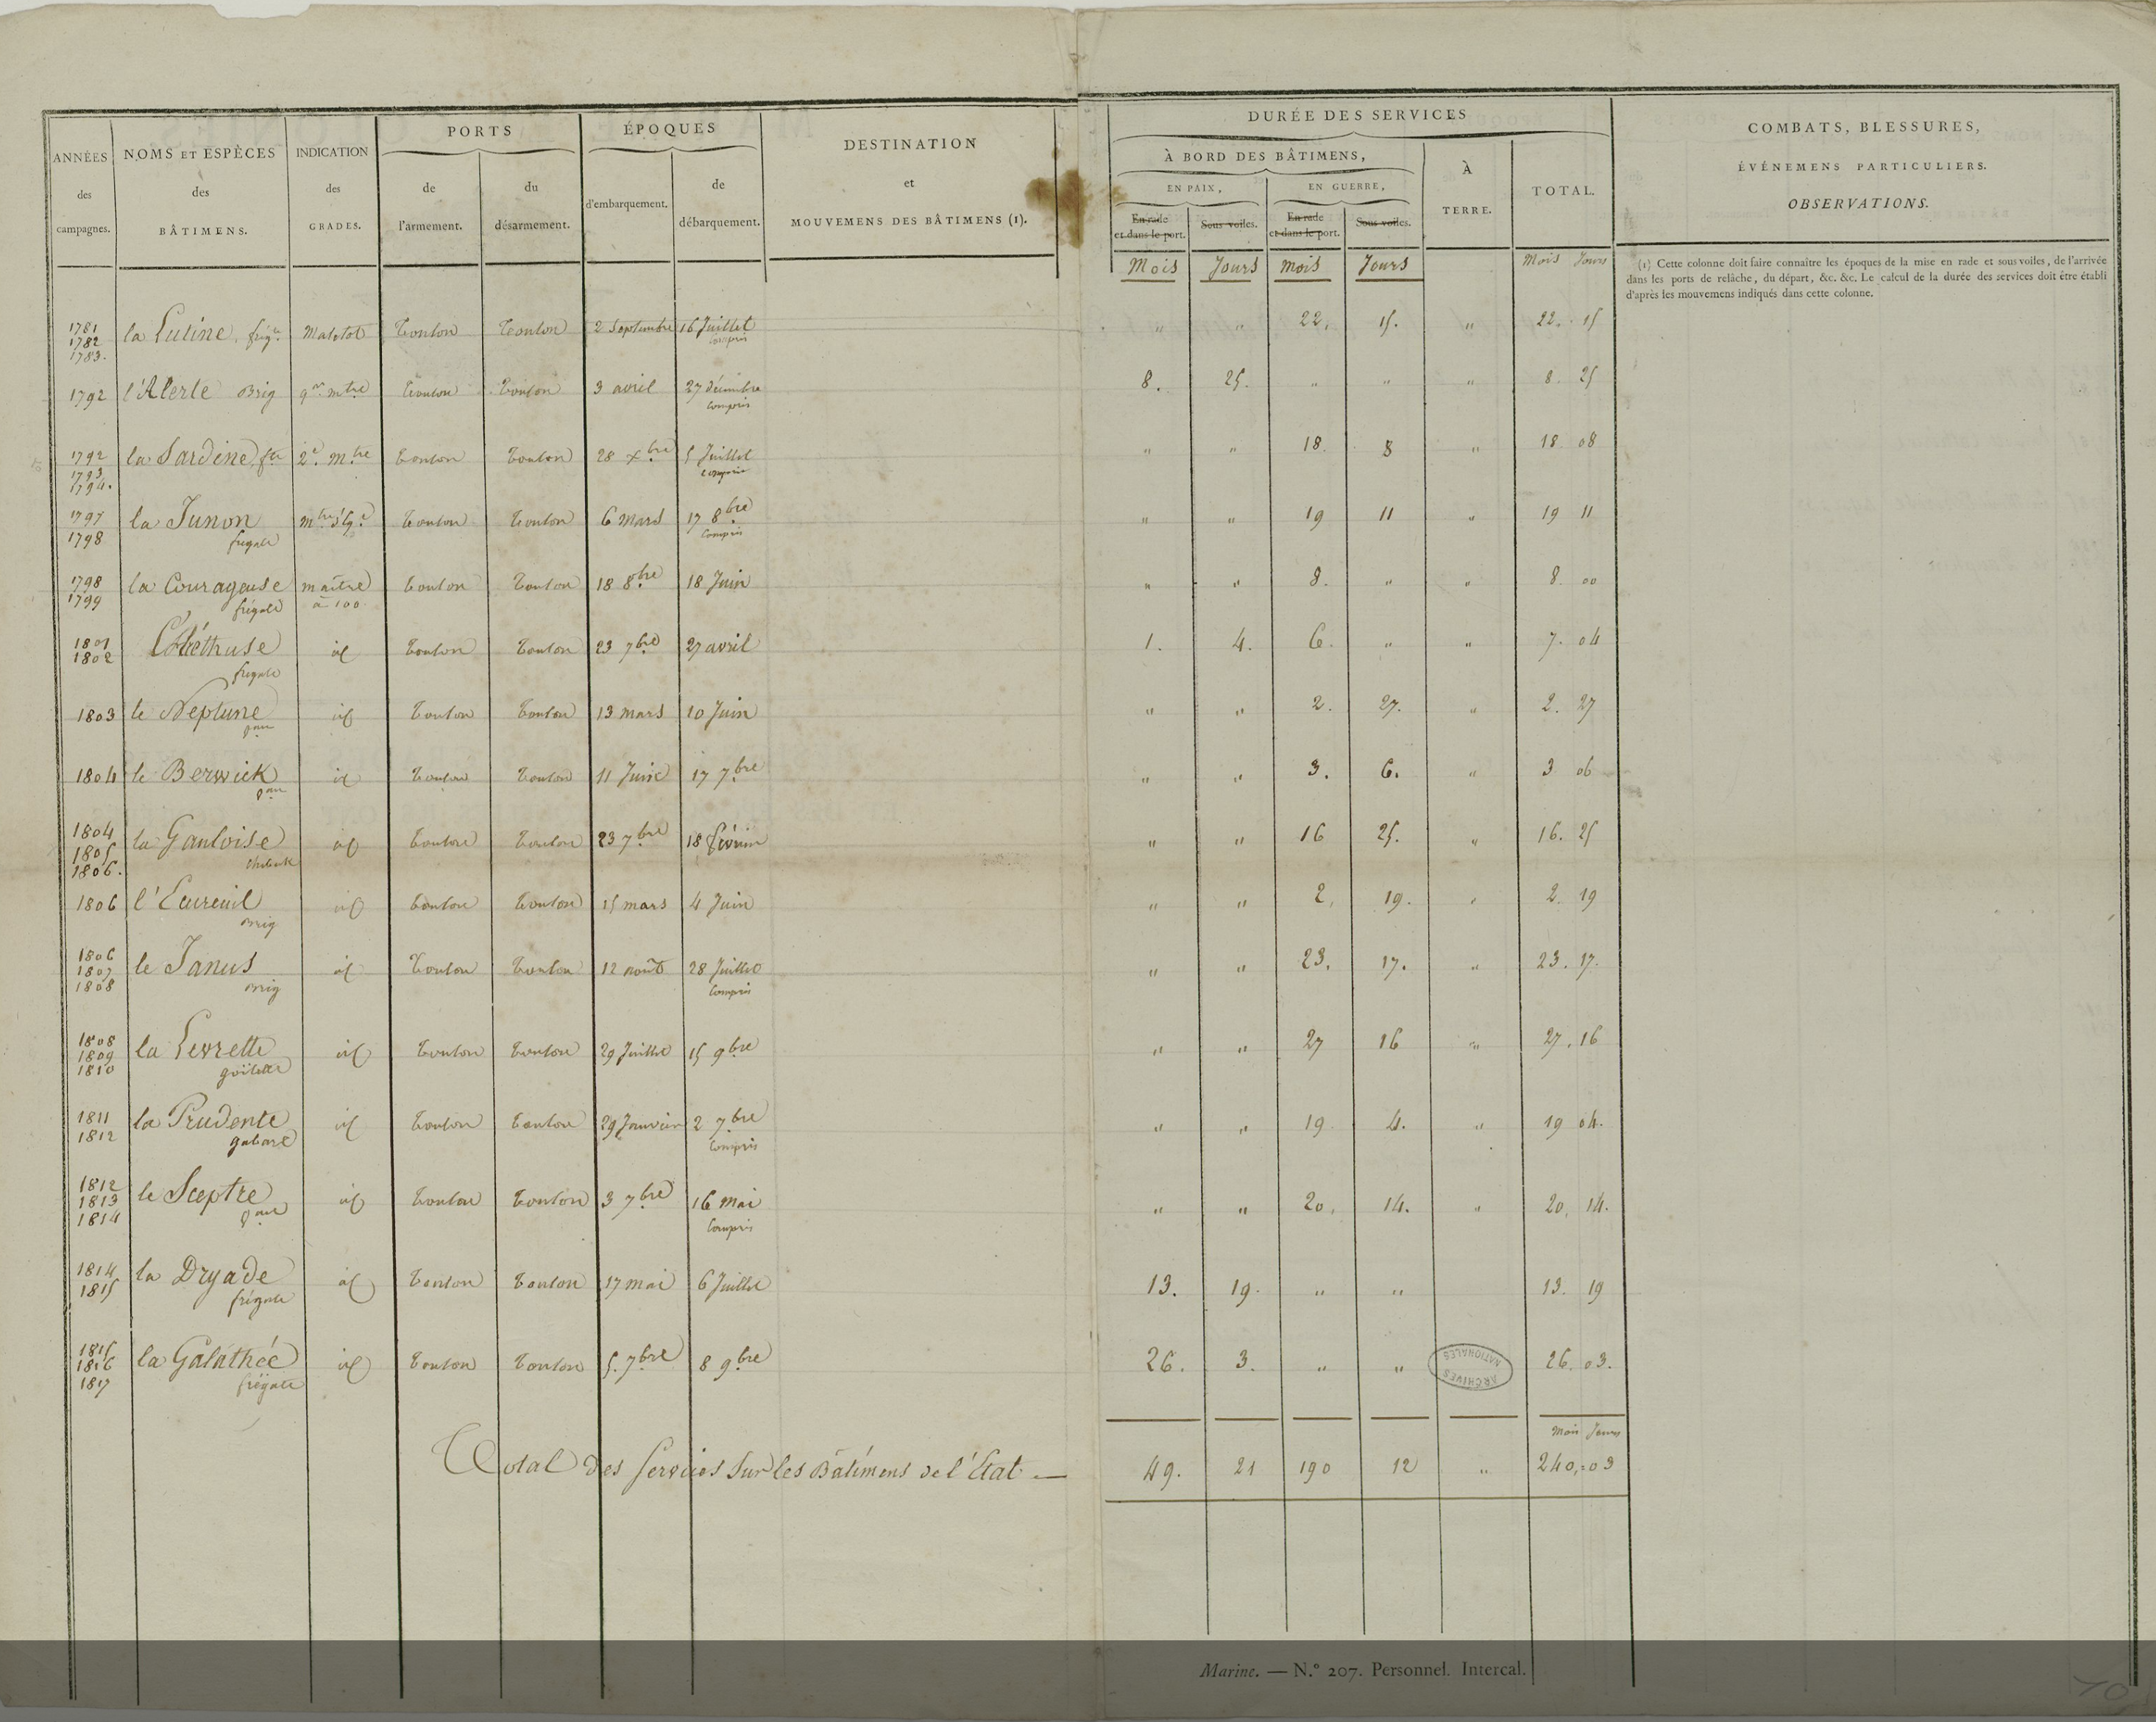 ANNÉES
des
campagnes.
NOMS ET ESPÈCES
des
BÂTIMENS.
INDICATION
des
GRADES.
PORTS
de
l'armement.
du
désarmement.
ÉPOQUES
d'embarquement.
de
débarquement.
DESTINATION
et
MOUVEMENS DES BÂTIMENS (1).
DURÉE DES SERVICES
À BORD DES BÂTIMENS,
EN PAIX,
EN GUERRE,
En rade
et dans le port.
Sous voiles.
En rade
et dans le port.
Sous voiles.
À
TERRE.
TOTAL.
COMBATS, BLESSURES,
ÉVÉNEMENS PARTICULIERS.
OBSERVATIONS.
Mois Jours mois Jours Mois Jours
(1) Cette colonne doit faire connaître les époques de la mise en rade et sous voiles, de l'arrivée
dans les ports de relâche, du départ, &c. &c. Le calcul de la durée des services doit être établi
d'après les mouvemens indiqués dans cette colonne.
1781
1782
1783.
la Lutine frig.te Matelot Toulon Toulon 2 Septembre 16 Juillet
compris
" " 22. 15. " 22. 15
1792 l'Alerte Brig q.er m.tre Toulon Toulon 3 avril 27 décembre
compris
8. 25. " " " 8. 25
1792
1793
1794.
la Sardine 2.e m.tre Toulon Toulon 28 Xbre 5 Juillet
compris
" " 18. 8 " 18 08
1797
1798
la Junon
fregate
Toulon Toulon 6 Mars 17 8bre
compris
" " 19 11 " 19 11
1798
1799
la Courageuse
frégate
maître
à 100
Toulon Toulon 18 8bre 18 Juin " " 8. " " 8. 00
1801
1802
frégate
id Toulon Toulon 23 7bre 27 avril 1. 4. 6. " " 7. 04
1803 le Neptune
id Toulon Toulon 13 mars 10 Juin " " 2. 27. " 2. 27
1804 le Berwick
id Toulon Toulon 11 Juin 17 7bre " " 3. 6. " 3 06
1804
1805
1806.
la Gauloise
id Toulon Toulon 23 7bre 18 février " " 16 25. " 16. 25
1806 l'Ecureuil
Brig
id Toulon Toulon 15 mars 4 Juin " " 2. 19. " 2. 19
1806
1807
1808
le Janus
Brig
id Toulon Toulon 12 août 28 Juillet
compris
" " 23. 17. " 23. 17.
1808
1809
1810
la Levrette
goëlette
id Toulon Toulon 29 Juillet 15 9bre " " 27 16 " 27. 16
1811
1812
la Prudente
gabare
id Toulon Toulon 29 Janvier 2 7bre
compris
" " 19 4. " 19 04.
1812
1813
1814
le Sceptre
id Toulon Toulon 3 7bre 16 mai
Compris
" " 20. 14. " 20. 14.
1814
1815
la Dryade
frégate
id Toulon Toulon 17 mai 6 Juillet 13. 19. " " 13. 19
1815
1816
1817
la Galathée
frégate
id Toulon Toulon 5. 7bre 8 9bre 26. 3. " " 26. 03.
ARCHIVES
NATIONALES
Mois Jours
Total des Services Sur les Bâtimens de l'État — 49. 21 190 12 " 240. 03
Marine. — N.° 207. Personnel. Intercal.
10